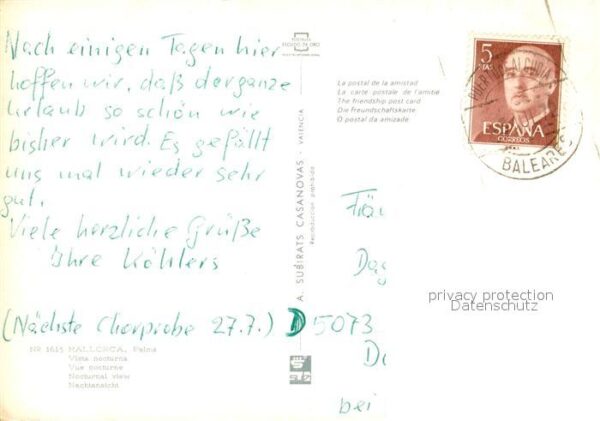 Nach einigen Tagen hier
hoffen wir, daß der ganze
Urlaub so schön wie
bisher wird. Es gefällt
uns mal wieder sehr
gut.
Viele herzliche Grüße
Ihre Köhlers
(Nächste Chorprobe 27.7.)
Nº 1615 MALLORCA, Palma
Vista nocturna
Vue nocturne
Nocturnal view
Nachtansicht
POSTALES
ESCUDO DE ORO
A. SUBIRATS CASANOVAS - VALENCIA
Reproducción prohibida
La postal de la amistad
La carte postale de l'amitié
The friendship post card
Die Freundschaftskarte
O postal da amizade
5
PTAS
ESPAÑA
CORREOS
BALEARES
D 5073
bei
privacy protection
Datenschutz